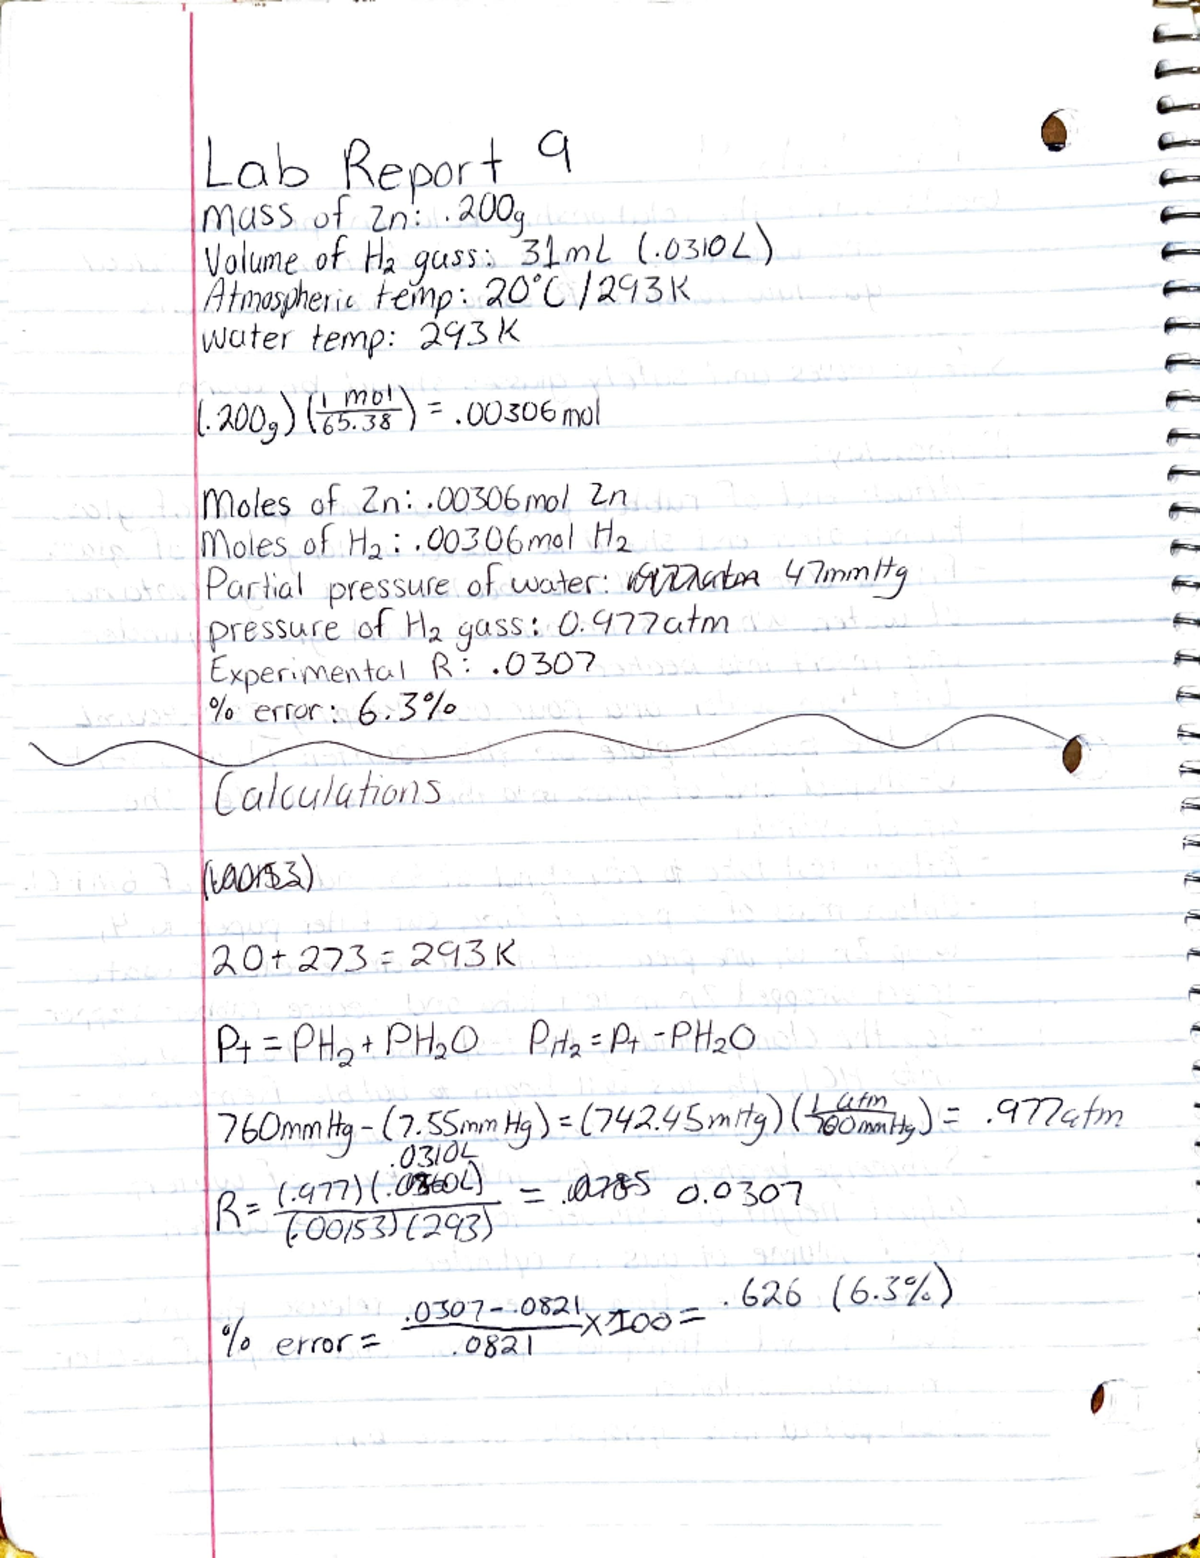 Lab Report 9
Mass of Zn: .200g
Volume of H₂ gass: 31mL (.0310L)
Atmospheric temp: 20°C / 293K
water temp: 293K
(.200g) (1 mol / 65.38) = .00306 mol
Moles of Zn: .00306 mol Zn
Moles of H₂: .00306 mol H₂
Partial pressure of water: 47mmHg
pressure of H₂ gass: 0.977atm
Experimental R: .0307
% error: 6.3%
Calculations
20 + 273 = 293K
Pt = PH₂ + PH₂O PH₂ = Pt - PH₂O
760mmHg - (7.55mm Hg) = (742.45mHg) (1 atm / 760mmHg) = .977atm
.0310L
R = (.977)( / (.00153)(293) = 0.0307
% error = .0307 - .0821 / .0821 x 100 = .626 (6.3%)